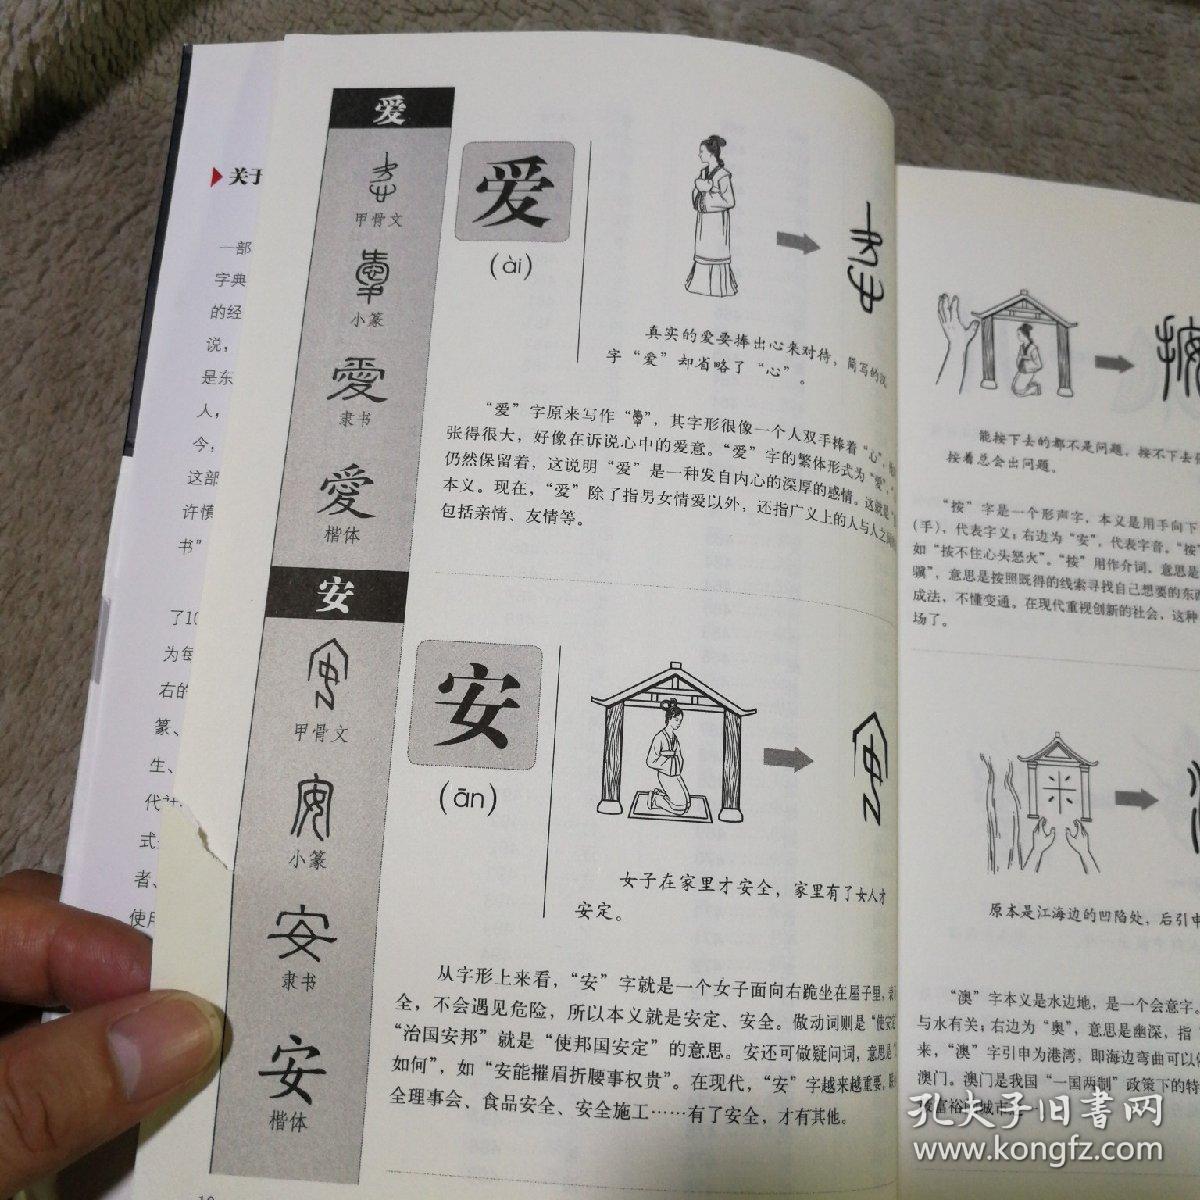 关于
一部
字典
的经
说，
是东
人，
今，
这部
许慎
书”
了10
为每
右的
篆、
生、
式
者、
使用
爱
甲骨文
小篆
愛
隶书
愛
楷体
安
甲骨文
小篆
安
隶书
安
楷体
爱
(ài)
真实的爱要捧出心来对待，简写的汉
字“爱”却省略了“心”。
“爱”字原来写作“”，其字形很像一个人双手捧着“心”，
张得很大，好像在诉说心中的爱意。“爱”字的繁体形式为“愛”，“
仍然保留着，这说明“爱”是一种发自内心的深厚的感情。这就是“
本义。现在，“爱”除了指男女情爱以外，还指广义上的人与人之间
包括亲情、友情等。
安
(ān)
女子在家里才安全，家里有了女人才
安定。
从字形上来看，“安”字就是一个女子面向右跪坐在屋子里，
全，不会遇见危险，所以本义就是安定、安全。做动词则是“使安定
“治国安邦”就是“使邦国安定”的意思。安还可做疑问词，意思是“
如何”，如“安能摧眉折腰事权贵”。在现代，“安”字越来越重要，联
全理事会、食品安全、安全施工……有了安全，才有其他。
按
能按下去的都不是问题，按不下去
按着总会出问题。
“按”字是一个形声字，本义是用手向下
(手)，代表字义；右边为“安”，代表字音。“按”
如“按不住心头怒火”。“按”用作介词，意思是
骥”，意思是按照既得的线索寻找自己想要的东西
成法，不懂变通。在现代重视创新的社会，这种
场了。
原本是江海边的凹陷处，后引申
“澳”字本义是水边地，是一个会意字。
与水有关；右边为“奥”，意思是幽深，指
来，“澳”字引申为港湾，即海边弯曲可以停
澳门。澳门是我国“一国两制”政策下的特
富裕 城市
孔夫子旧书网
www.kongfz.com